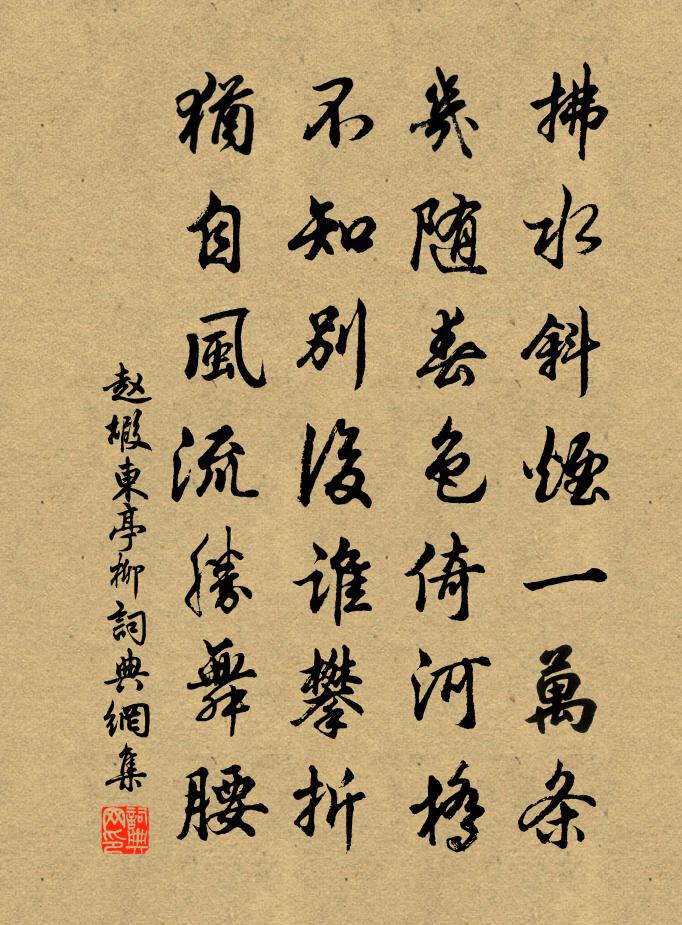 拂水斜煙一萬条
幾随春色倚河橋
不知別後誰攀折
猶自風流勝舞腰
赵嘏東亭柳詞典網集
詞典网印